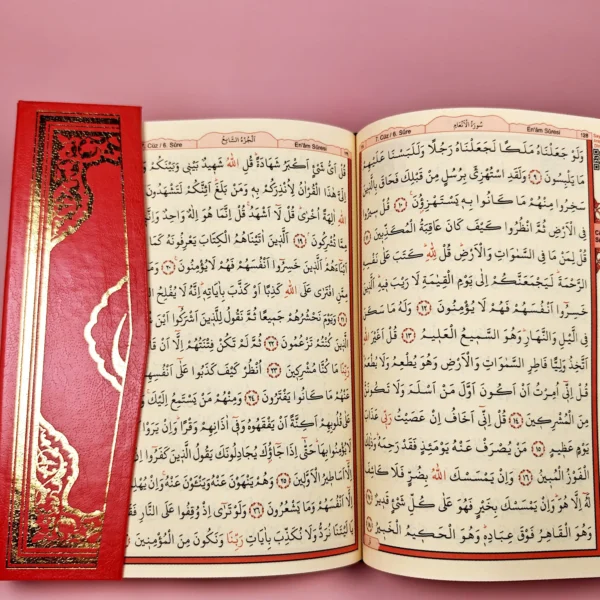 7. Cüz / 6. Sûre سُورَةُ الْاَنْعَامِ En'âm Sûresi 128
وَلَوْ جَعَلْنَاهُ مَلَكًا لَجَعَلْنَاهُ رَجُلًا وَلَلَبَسْنَا عَلَيْهِمْ
مَا يَلْبِسُونَ ﴿٩﴾ وَلَقَدِ اسْتُهْزِئَ بِرُسُلٍ مِنْ قَبْلِكَ فَحَاقَ بِالَّذِينَ
سَخِرُوا مِنْهُمْ مَا كَانُوا بِهِ يَسْتَهْزِؤُنَ ﴿١٠﴾ قُلْ سِيرُوا
فِي الْاَرْضِ ثُمَّ انْظُرُوا كَيْفَ كَانَ عَاقِبَةُ الْمُكَذِّبِينَ ﴿١١﴾
قُلْ لِمَنْ مَا فِي السَّمٰوَاتِ وَالْاَرْضِ قُلْ لِلّٰهِ كَتَبَ عَلٰى نَفْسِهِ
الرَّحْمَةَ لَيَجْمَعَنَّكُمْ اِلٰى يَوْمِ الْقِيٰمَةِ لَا رَيْبَ فِيهِ اَلَّذِينَ
خَسِرُوا اَنْفُسَهُمْ فَهُمْ لَا يُؤْمِنُونَ ﴿١٢﴾ وَلَهُ مَا سَكَنَ
فِي الَّيْلِ وَالنَّهَارِ وَهُوَ السَّمِيعُ الْعَلِيمُ ﴿١٣﴾ قُلْ اَغَيْرَ اللّٰهِ
اَتَّخِذُ وَلِيًّا فَاطِرِ السَّمٰوَاتِ وَالْاَرْضِ وَهُوَ يُطْعِمُ وَلَا يُطْعَمُ
قُلْ اِنِّي اُمِرْتُ اَنْ اَكُونَ اَوَّلَ مَنْ اَسْلَمَ وَلَا تَكُونَنَّ
مِنَ الْمُشْرِكِينَ ﴿١٤﴾ قُلْ اِنِّي اَخَافُ اِنْ عَصَيْتُ رَبِّي عَذَابَ
يَوْمٍ عَظِيمٍ ﴿١٥﴾ مَنْ يُصْرَفْ عَنْهُ يَوْمَئِذٍ فَقَدْ رَحِمَهُ وَذٰلِكَ
الْفَوْزُ الْمُبِينُ ﴿١٦﴾ وَاِنْ يَمْسَسْكَ اللّٰهُ بِضُرٍّ فَلَا كَاشِفَ
لَهُ اِلَّا هُوَ وَاِنْ يَمْسَسْكَ بِخَيْرٍ فَهُوَ عَلٰى كُلِّ شَيْءٍ قَدِيرٌ ﴿١٧﴾
وَهُوَ الْقَاهِرُ فَوْقَ عِبَادِهِ وَهُوَ الْحَكِيمُ الْخَبِيرُ ﴿١٨﴾
7. Cüz / 6. Sûre اَلْجُزْءُ السَّابِعُ En'âm Sûresi
قُلْ اَيُّ شَيْءٍ اَكْبَرُ شَهَادَةً قُلِ اللّٰهُ شَهِيدٌ بَيْنِي وَبَيْنَكُمْ
اِلَيَّ هٰذَا الْقُرْاٰنُ لِاُنْذِرَكُمْ بِهِ وَمَنْ بَلَغَ اَئِنَّكُمْ لَتَشْهَدُونَ
اللّٰهِ اٰلِهَةً اُخْرٰى قُلْ لَا اَشْهَدُ قُلْ اِنَّمَا هُوَ اِلٰهٌ وَاحِدٌ
مِمَّا تُشْرِكُونَ ﴿١٩﴾ اَلَّذِينَ اٰتَيْنَاهُمُ الْكِتَابَ يَعْرِفُونَهُ كَمَا
اَبْنَاءَهُمْ اَلَّذِينَ خَسِرُوا اَنْفُسَهُمْ فَهُمْ لَا يُؤْمِنُونَ ﴿٢٠﴾
مِمَّنِ افْتَرٰى عَلَى اللّٰهِ كَذِبًا اَوْ كَذَّبَ بِاٰيَاتِهِ اِنَّهُ لَا يُفْلِحُ
﴿٢١﴾ وَيَوْمَ نَحْشُرُهُمْ جَمِيعًا ثُمَّ نَقُولُ لِلَّذِينَ اَشْرَكُوا
الَّذِينَ كُنْتُمْ تَزْعُمُونَ ﴿٢٢﴾ ثُمَّ لَمْ تَكُنْ فِتْنَتُهُمْ اِلَّا اَنْ
رَبِّنَا مَا كُنَّا مُشْرِكِينَ ﴿٢٣﴾ اُنْظُرْ كَيْفَ كَذَبُوا عَلٰى اَنْفُسِهِمْ
عَنْهُمْ مَا كَانُوا يَفْتَرُونَ ﴿٢٤﴾ وَمِنْهُمْ مَنْ يَسْتَمِعُ اِلَيْكَ
عَلٰى قُلُوبِهِمْ اَكِنَّةً اَنْ يَفْقَهُوهُ وَفِي اٰذَانِهِمْ وَقْرًا وَاِنْ يَرَوْا
لَا يُؤْمِنُوا بِهَا حَتّٰى اِذَا جَاؤُكَ يُجَادِلُونَكَ يَقُولُ الَّذِينَ كَفَرُوا
اِلَّا اَسَاطِيرُ الْاَوَّلِينَ ﴿٢٥﴾ وَهُمْ يَنْهَوْنَ عَنْهُ وَيَنْـَٔوْنَ عَنْهُ وَاِنْ يُهْلِكُونَ
اِلَّا اَنْفُسَهُمْ وَمَا يَشْعُرُونَ ﴿٢٦﴾ وَلَوْ تَرٰى اِذْ وُقِفُوا عَلَى النَّارِ فَقَالُوا
يَا لَيْتَنَا نُرَدُّ وَلَا نُكَذِّبَ بِاٰيَاتِ رَبِّنَا وَنَكُونَ مِنَ الْمُؤْمِنِينَ